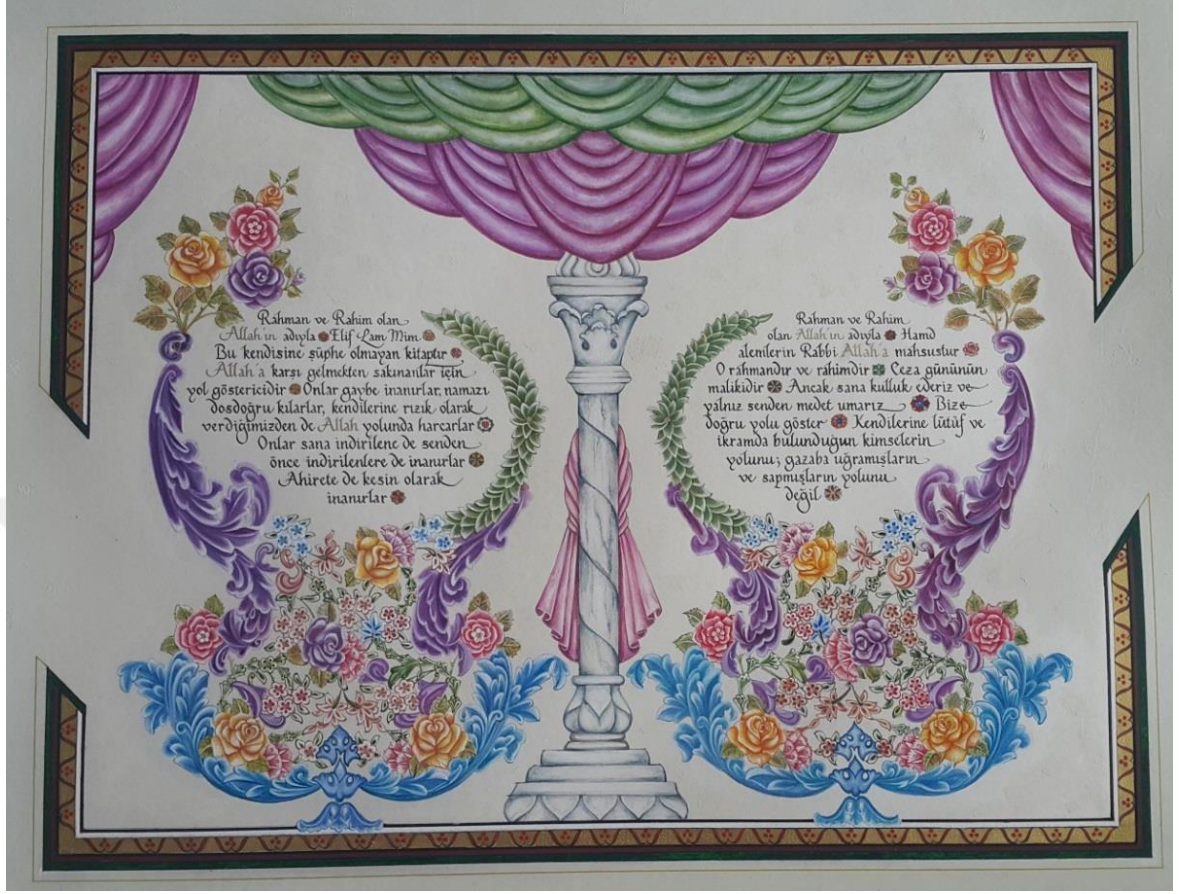 Rahman ve Rahim olan
Allah'ın adıyla Elif Lam Mim
Bu kendisine şüphe olmayan kitaptır
Allah'a karşı gelmekten sakınanlar için
yol göstericidir Onlar gaybe inanırlar, namazı
dosdoğru kılarlar, kendilerine rızık olarak
verdiğimizden de Allah yolunda harcarlar
Onlar sana indirilene de senden
önce indirilenlere de inanırlar
Ahirete de kesin olarak
inanırlar
Rahman ve Rahim
olan Allah'ın adıyla Hamd
alemlerin Rabbi Allah'a mahsustur
O rahmandır ve rahimdir Ceza gününün
malikidir Ancak sana kulluk ederiz ve
yalnız senden medet umarız Bize
doğru yolu göster Kendilerine lütüf ve
ikramda bulunduğun kimselerin
yolunu; gazaba uğramışların
ve sapmışların yolunu
değil